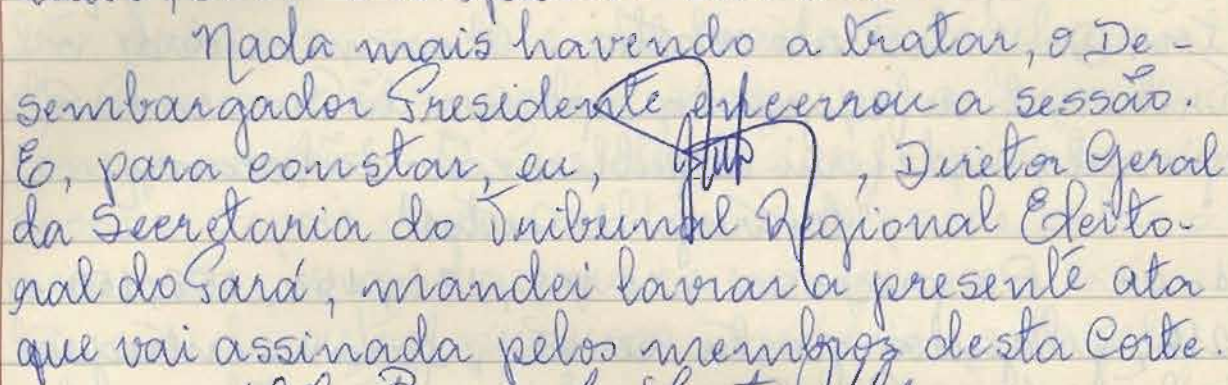 Nada mais havendo a tratar, o De-
sembargador Presidente encerrou a sessão.
E, para constar, eu, , Diretor Geral
da Secretaria do Tribunal Regional Eleito-
ral do Pará, mandei lavrar a presente ata
que vai assinada pelos membros desta Corte.